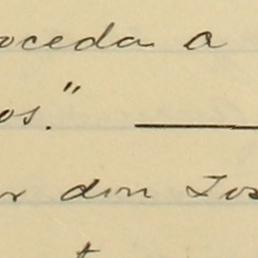 oceda a
os."
r don Jos